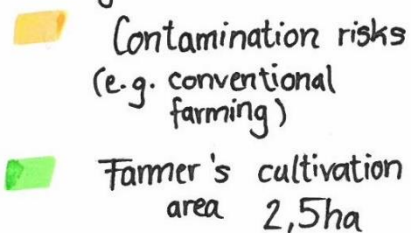 Contamination risks
(e.g. conventional
farming)
Farmer's cultivation
area 2,5ha